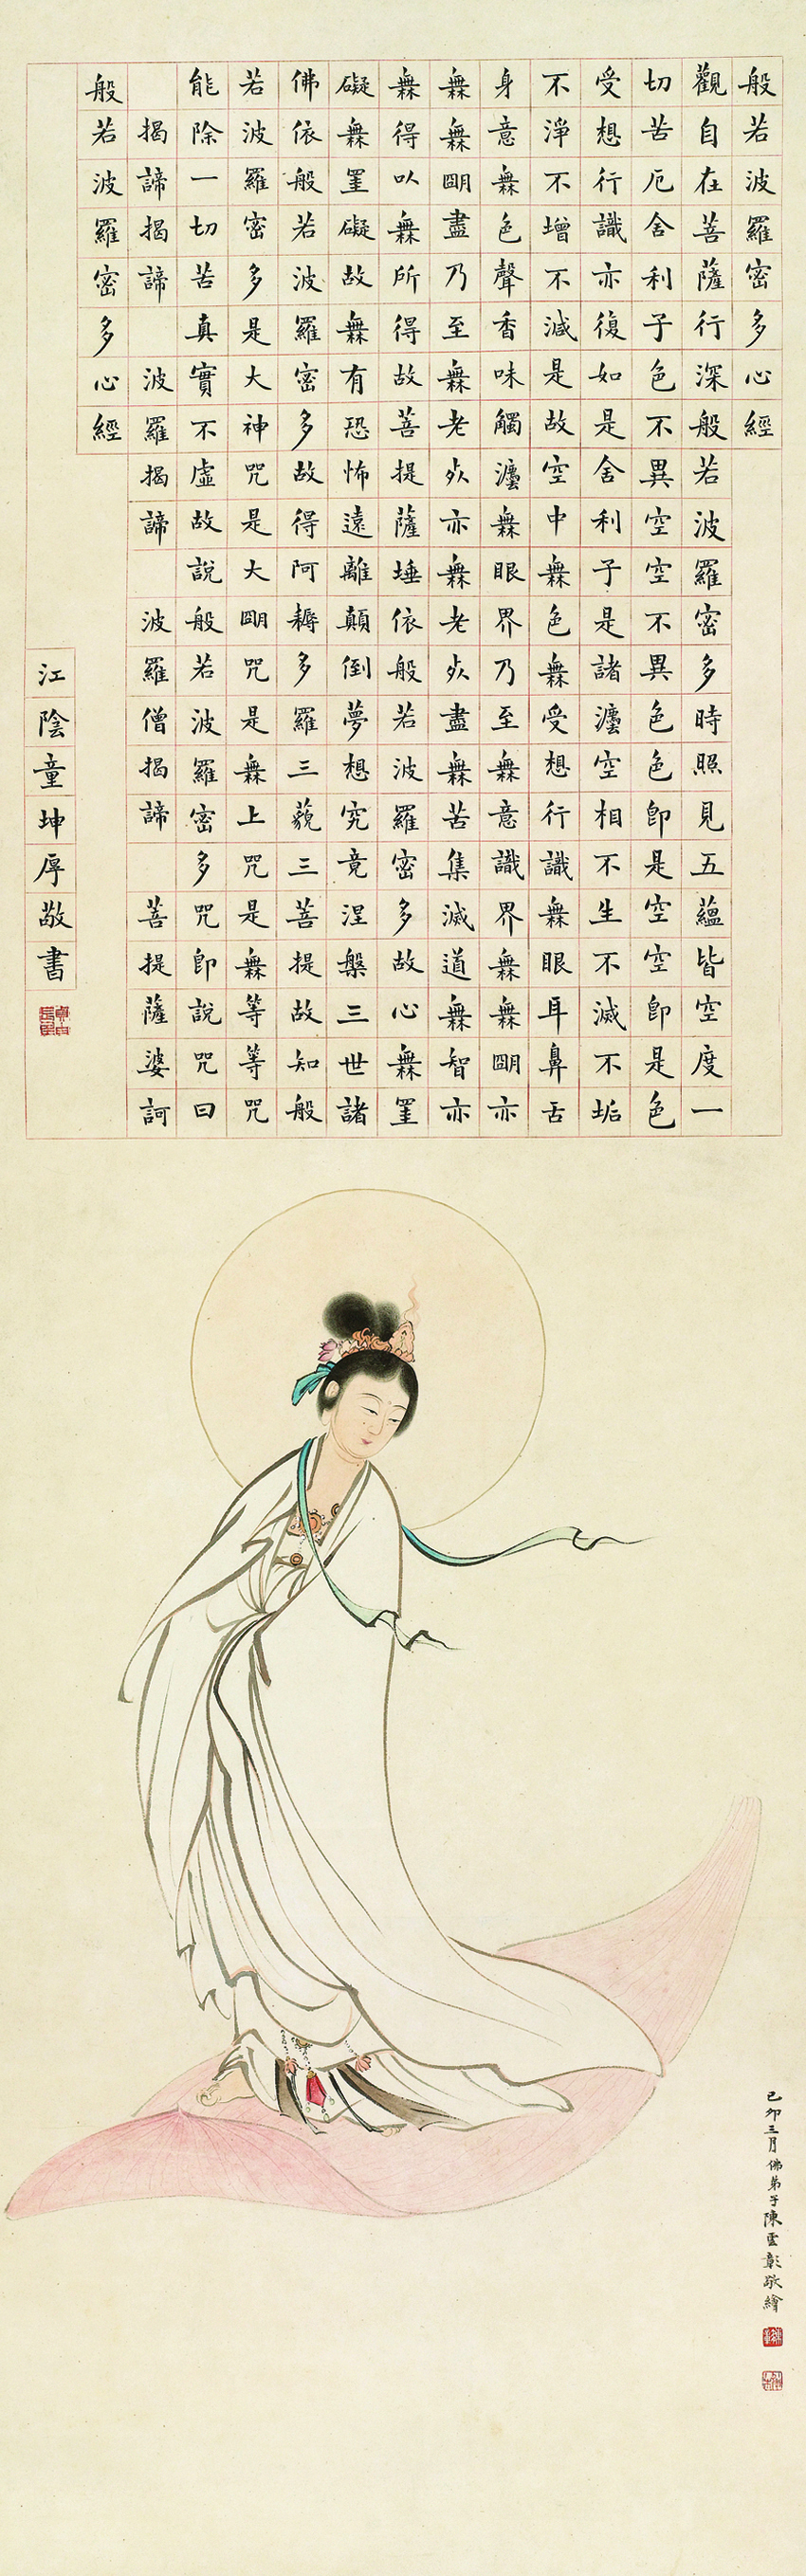 般若波羅密多心經
觀自在菩薩行深般若波羅密多時照見五蘊皆空度一
切苦厄舍利子色不異空空不異色色即是空空即是色
受想行識亦復如是舍利子是諸灋空相不生不滅不垢
不淨不增不減是故空中無色無受想行識無眼耳鼻舌
身意無色聲香味觸灋無眼界乃至無意識界無無朙亦
無無朙盡乃至無老死亦無老死盡無苦集滅道無智亦
無得以無所得故菩提薩埵依般若波羅密多故心無罣
礙無罣礙故無有恐怖遠離顛倒夢想究竟涅槃三世諸
佛依般若波羅密多故得阿耨多羅三藐三菩提故知般
若波羅密多是大神咒是大朙咒是無上咒是無等等咒
能除一切苦真實不虛故說般若波羅密多咒即說咒曰
揭諦揭諦 波羅揭諦 波羅僧揭諦 菩提薩婆訶
般若波羅密多心經
江陰童坤厚敬書
己卯三月佛弟子陳雲彰敬繪